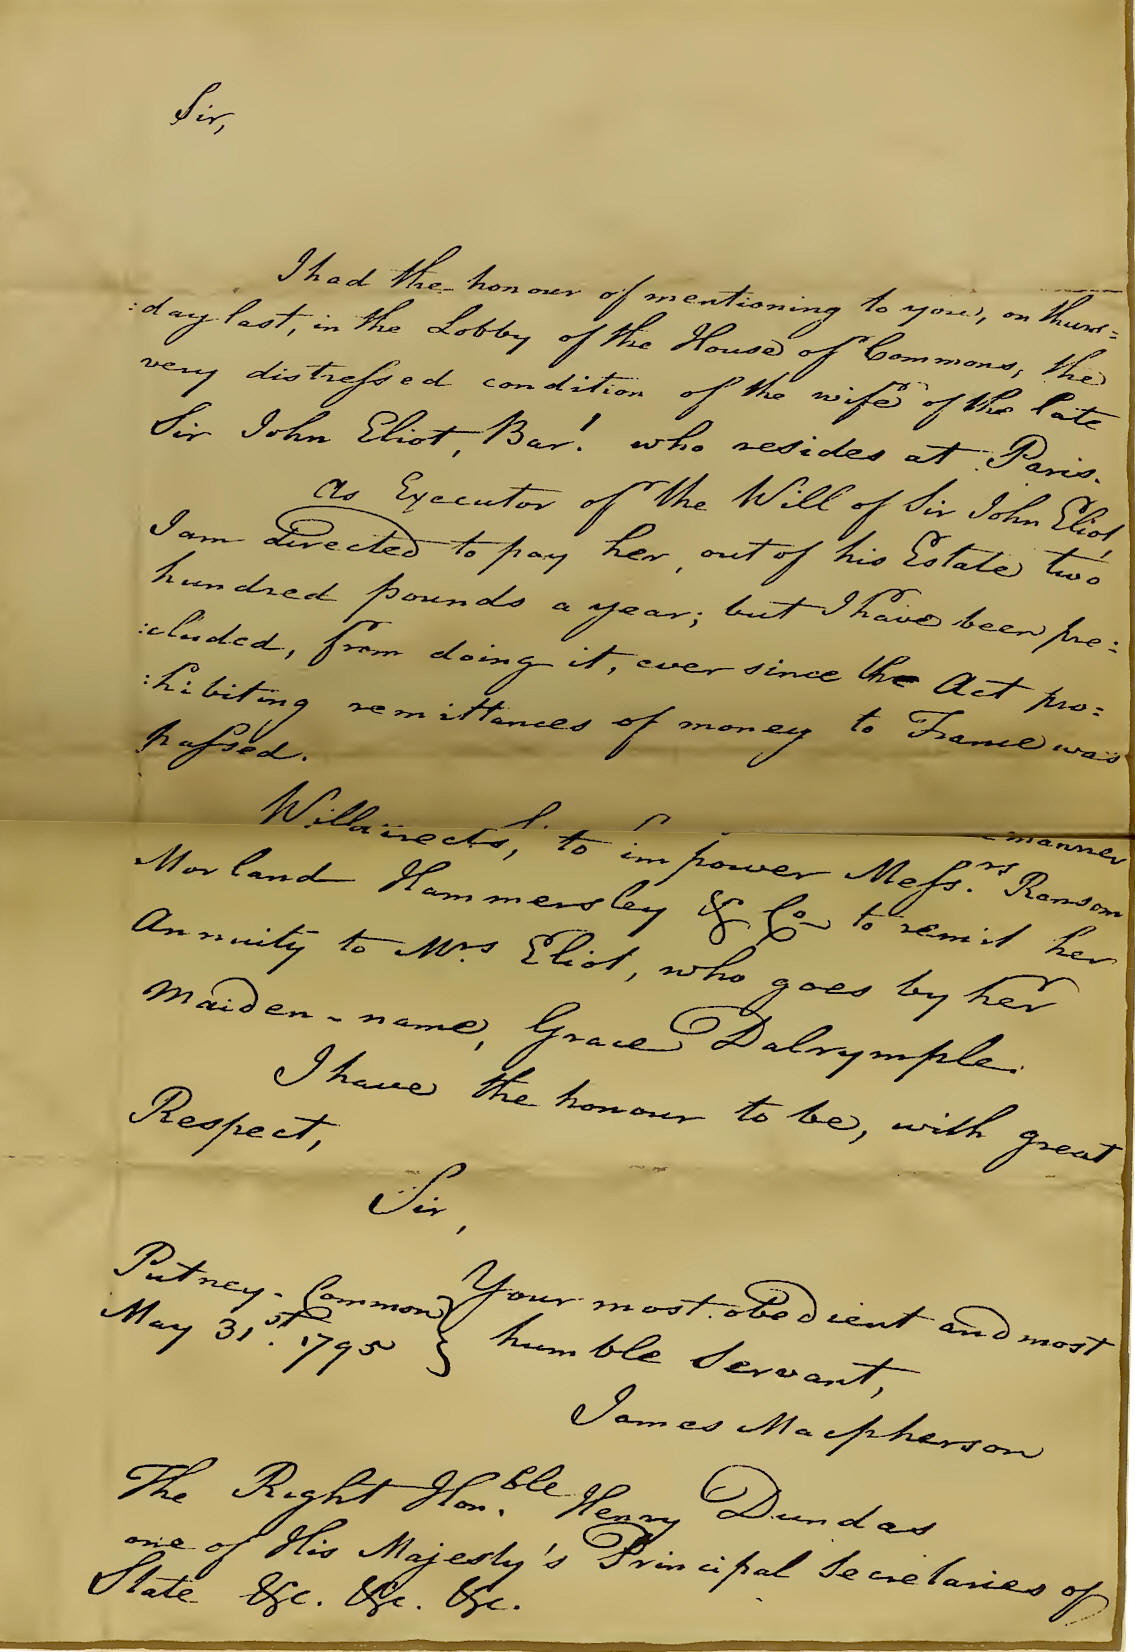 Sir,
I had the honour of mentioning to you, on thurs=
:day last, in the Lobby of the House of Commons, the
very distressed condition of the wife of the late
Sir John Eliot, Bar.t who resides at Paris.
As Executor of the Will of Sir John Eliot,
I am directed to pay her, out of his Estate two
hundred pounds a year; but I have been pre:
:cluded, from doing it, ever since the Act pro:
:hibiting remittances of money to France was
passed.
manner
Will directs, to impower Mess.rs Ransom
Morland Hammersley & Co to remit her
Annuity to Mrs Eliot, who goes by her
maiden-name, Grace Dalrymple.
I have the honour to be, with great
Respect,
Sir,
Your most obedient and most
humble Servant,
James Macpherson
Putney-Common
May 31st. 1795
The Right Hon.ble Henry Dundas
one of His Majesty's Principal Secretaries of
State &c. &c. &c.